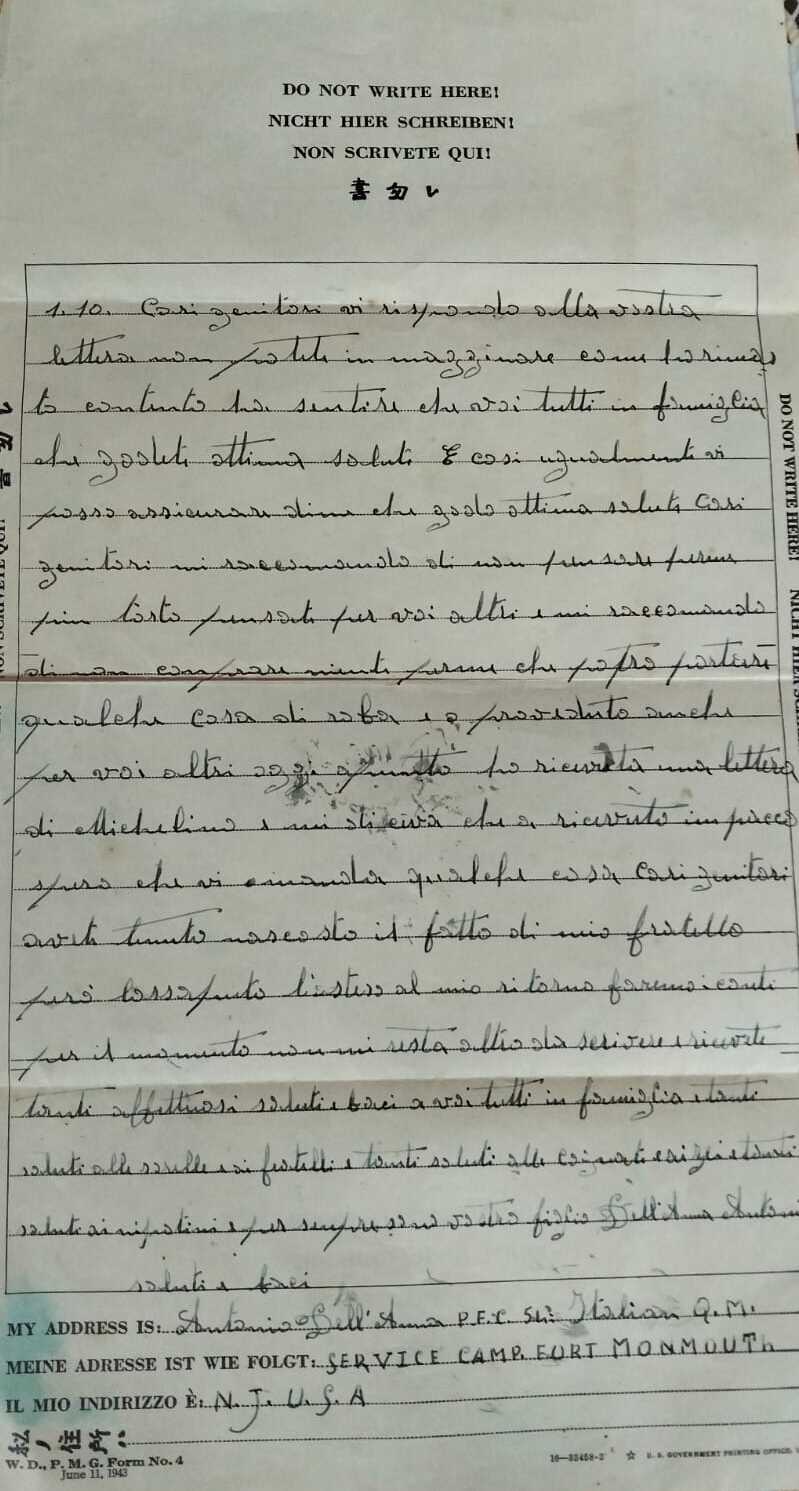 DO NOT WRITE HERE!
NICHT HIER SCHREIBEN!
NON SCRIVETE QUI!
1.10. Cari genitori vi rispondo alla vostra
lettera non potete in magginare come ho rimas
to contento ha sentire che voi tutti in famiglia
che godete ottima salute E cosi ugualmente vi
posso assicurare di me che godo ottima salute Cari
genitori mi raccomando di non pensare per me
piu tosto pensate per voi altri e mi raccomando
di non comprare niente per me che potro portare
qualche cosa di roba e o proveduto anche
per voi altri oggi apunto ho ricevuta una lettera
di Michelino e mi diceva che a ricevuto im pacco
spero che vi emanda qualche cosa Cari genitori
avete tenuto nascosto il fatto di mio fratello
però lossaputo listesso al mio ritorno faremo i conti
per il momento non mi resta altro da scrivere e ricevete
tanti affettuosi saluti e baci a voi tutti in famiglia e tanti
saluti alle sorelle e ai fratelli e tanti saluti alle cognate e ai zii e tanti
saluti ai nipotini e per sempre sono vostro figlio Dell'Anna Antonio
saluti e baci
MY ADDRESS IS: Antonio Dell'Anna P.F.C. Italian Q.M.
MEINE ADRESSE IST WIE FOLGT: SERVICE CAMP. FORT MONMOUTH
IL MIO INDIRIZZO È: N. J. U. S. A
W. D., P. M. G. Form No. 4
June 11, 1943
16—33458-2 ☆ U. S. GOVERNMENT PRINTING OFFICE
DO NOT WRITE HERE!